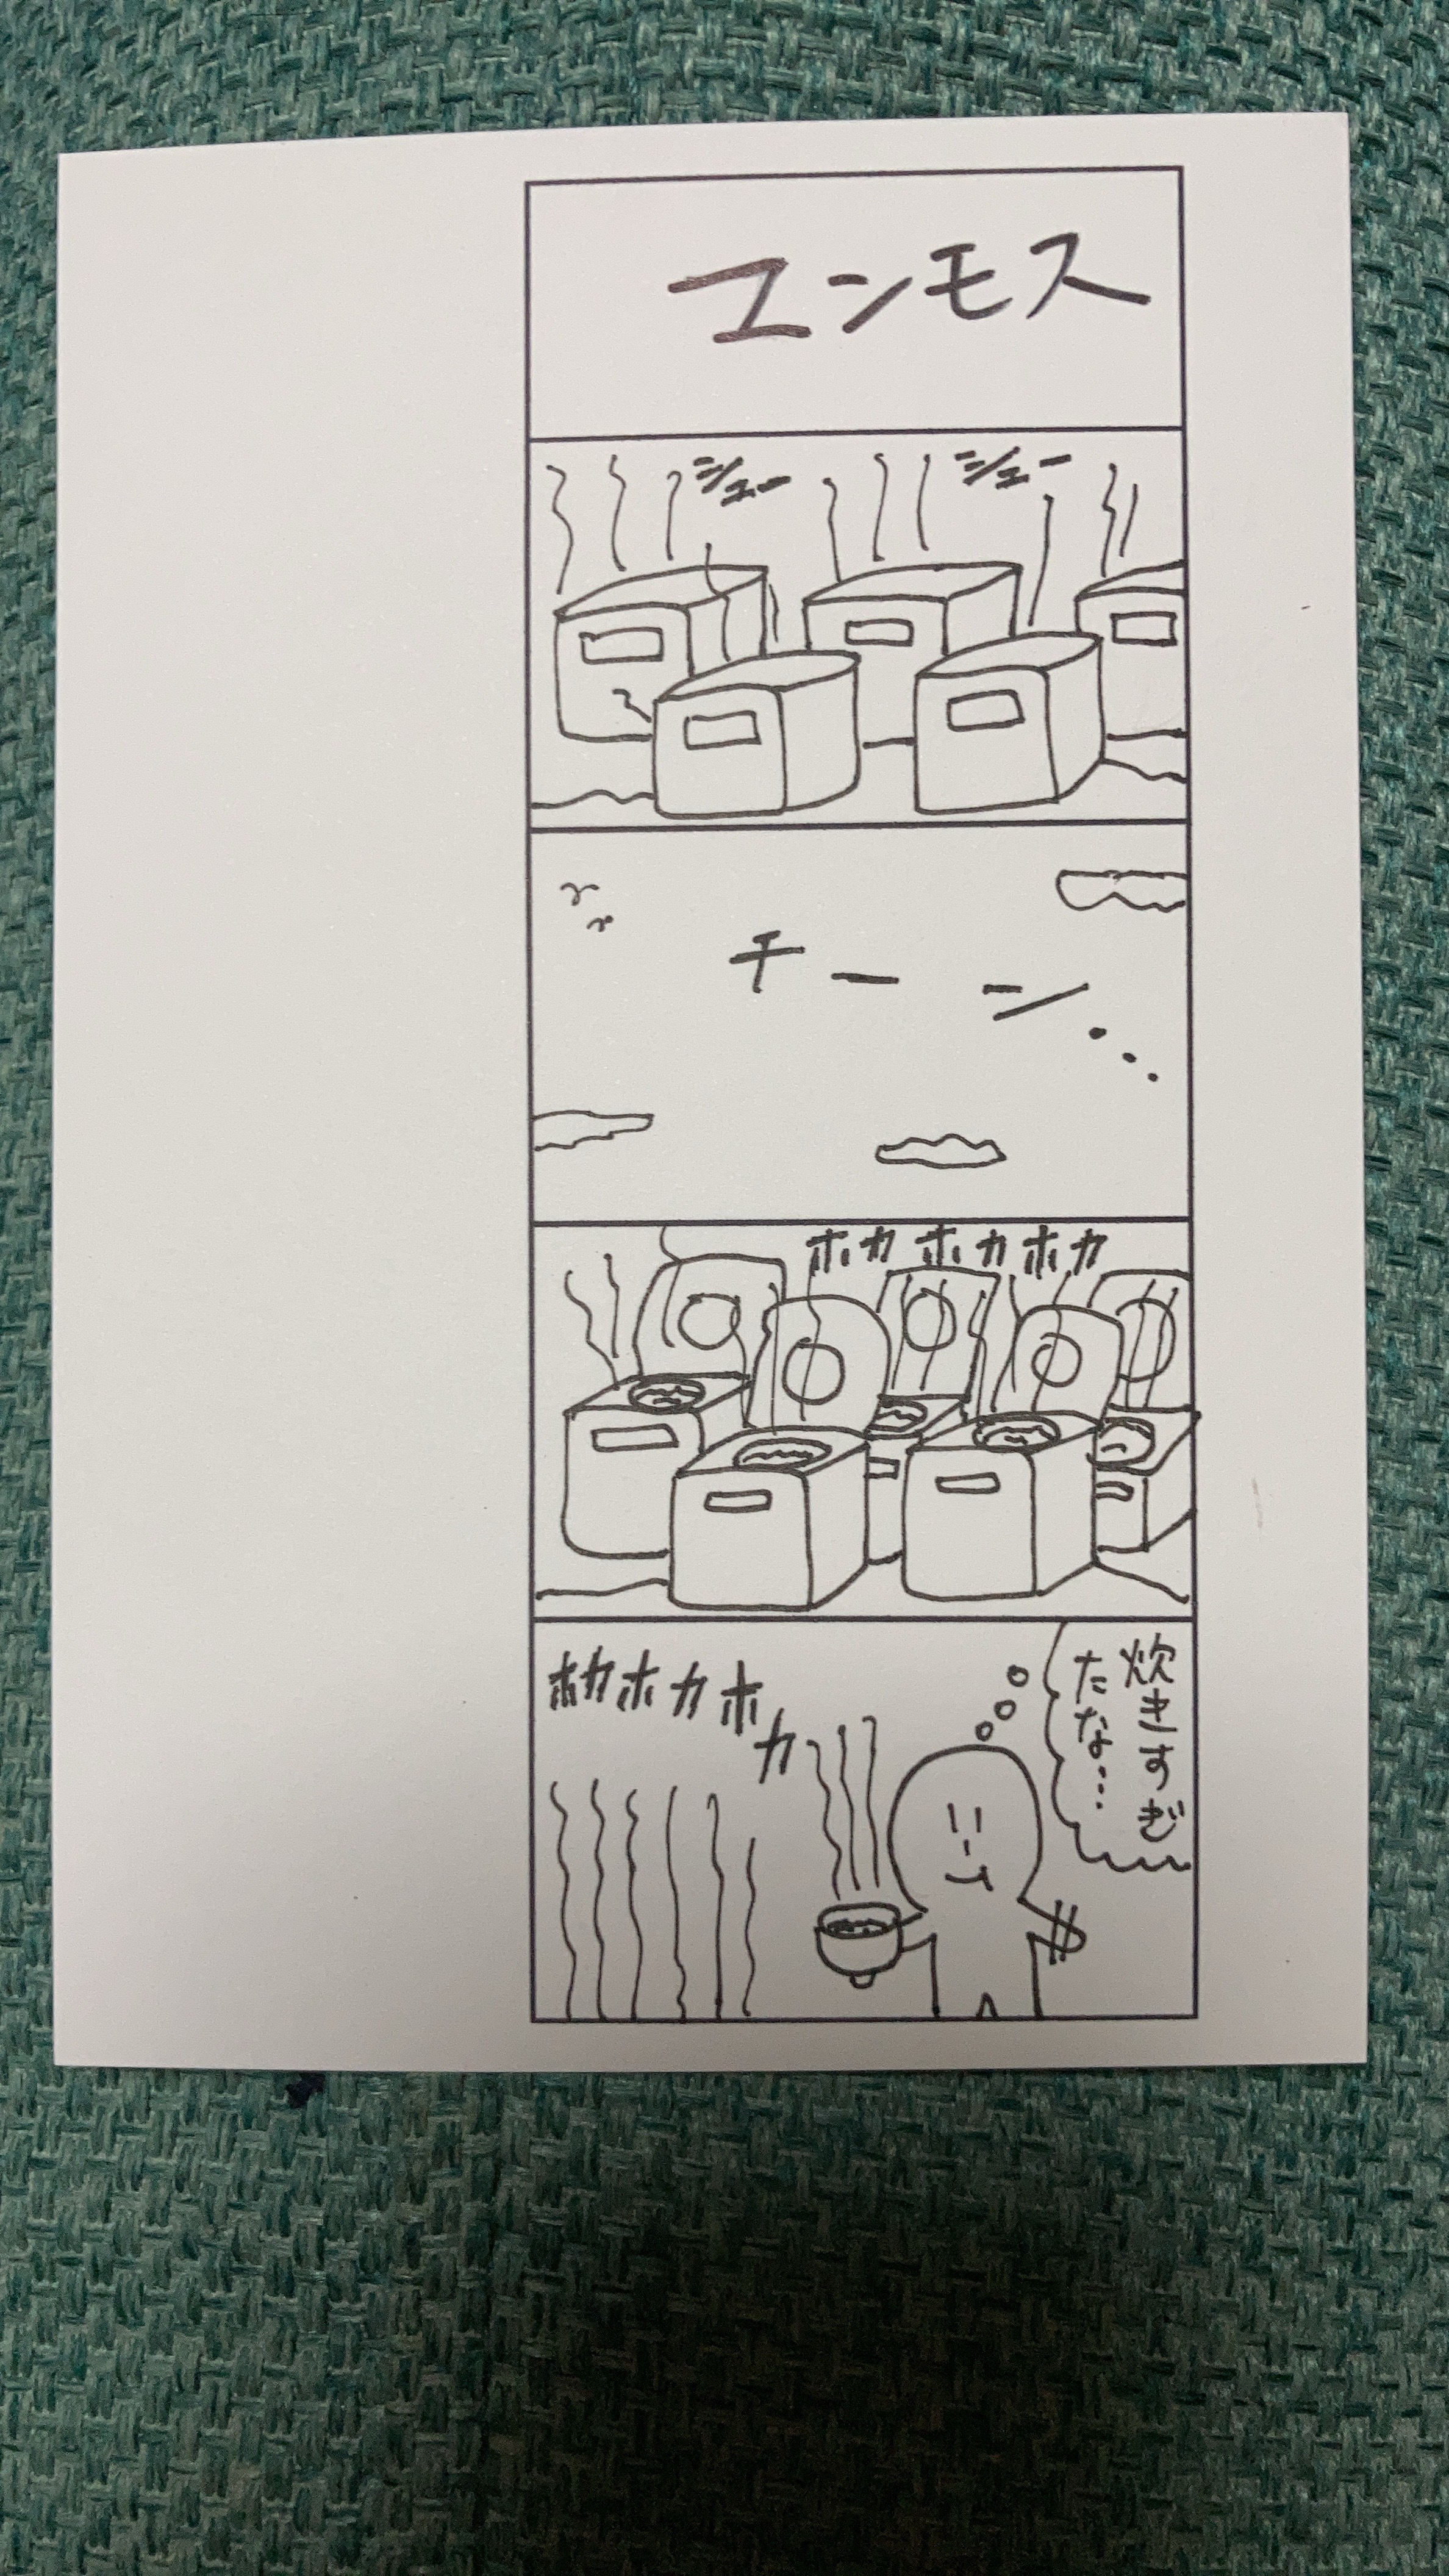 ユンモス
シュー
シュー
チーン...
ホカホカホカ
炊きすぎ
たな...
ホカホカホカ